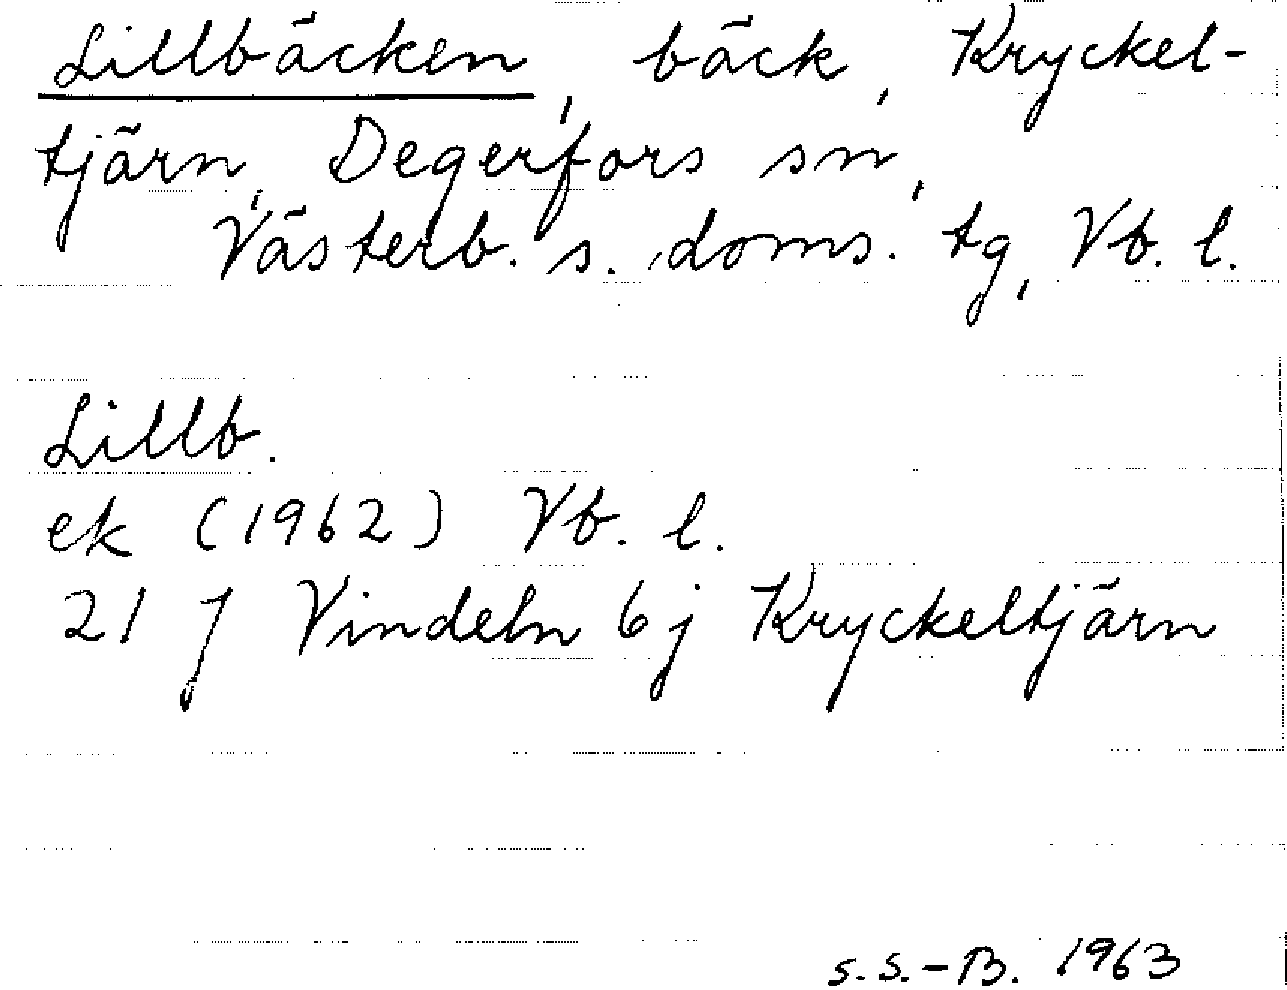 Lillbäcken, bäck, Kryckel-
tjärn, Degerfors sn,
Västerb. s. doms. tg, Vb. l.
Lillb.
ek (1962) Vb. l.
21 J Vindeln 6j Kryckeltjärn
S.S.-B. 1963